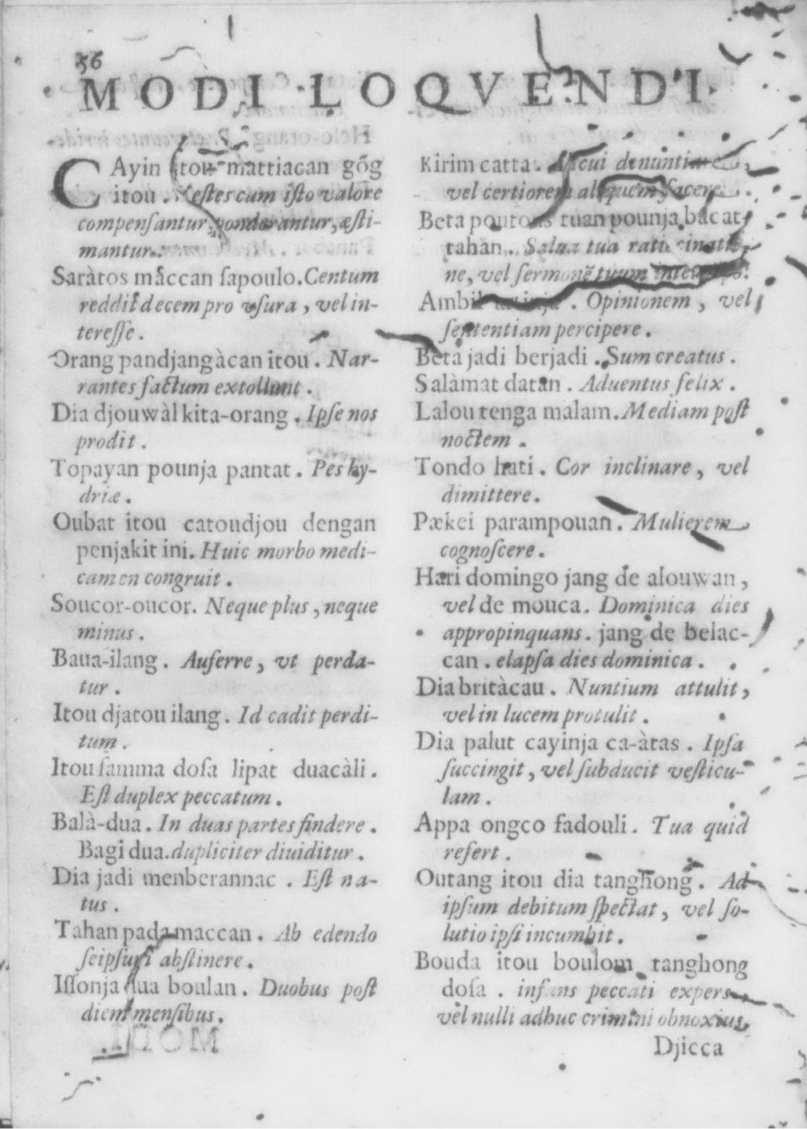 56
MODI LOQVENDI.
CAyin itou mattiacan gőg
itou. Vestes cum iſto valore
compenſantur, ponderantur, æſti-
mantur.
Saràtos măccan ſapoulo. Centum
reddit decem pro vſura, vel in-
tereſſe.
Orang pandjangàcan itou. Nar-
rantes factum extollunt.
Dia djouwàl kita-orang. Ipſe nos
prodit.
Topayan pounja pantat. Pes hy-
driæ.
Oubat itou catoudjou dengan
penjakit ini. Huic morbo medi-
camen congruit.
Soucor-oucor. Neque plus, neque
minus.
Baua-ilang. Auferre, vt perda-
tur.
Itou djatou ilang. Id cadit perdi-
tum.
Itou ſamma doſa lipat duacàli.
Eſt duplex peccatum.
Balà-dua. In duas partes findere.
Bagi dua. dupliciter diuiditur.
Dia jadi menberannac. Eſt na-
tus.
Tahan pada maccan. Ab edendo
ſeipſum abſtinere.
Iſſonja dua boulan. Duobus poſt
diem menſibus.
Kirim catta. Alicui denuntiare,
vel certiorem aliquem facere.
Beta poutous tuan pounja bacat-
tahan. Salua tua ratiocinatio-
ne, vel ſermonẽ tuum interrupo.
Ambil. Opinionem, vel
ſententiam percipere.
Beta jadi berjadi. Sum creatus.
Salàmat datan. Aduentus felix.
Lalou tenga malam. Mediam poſt
noctem.
Tondo hati. Cor inclinare, vel
dimittere.
Pækei parampouan. Mulierem
cognoſcere.
Hari domingo jang de alouwan,
vel de mouca. Dominica dies
appropinquans. jang de belac-
can. elapſa dies dominica.
Dia britàcau. Nuntium attulit,
vel in lucem protulit.
Dia palut cayinja ca-àtas. Ipſa
ſuccingit, vel ſubducit veſticu-
lam.
Appa ongco fadouli. Tua quid
refert.
Outang itou dia tanghong. Ad
ipſum debitum ſpectat, vel ſo-
lutio ipſi incumbit.
Bouda itou boulom tanghong
doſa. infans peccati expers,
vel nulli adhuc crimini obnoxius.
Djicca